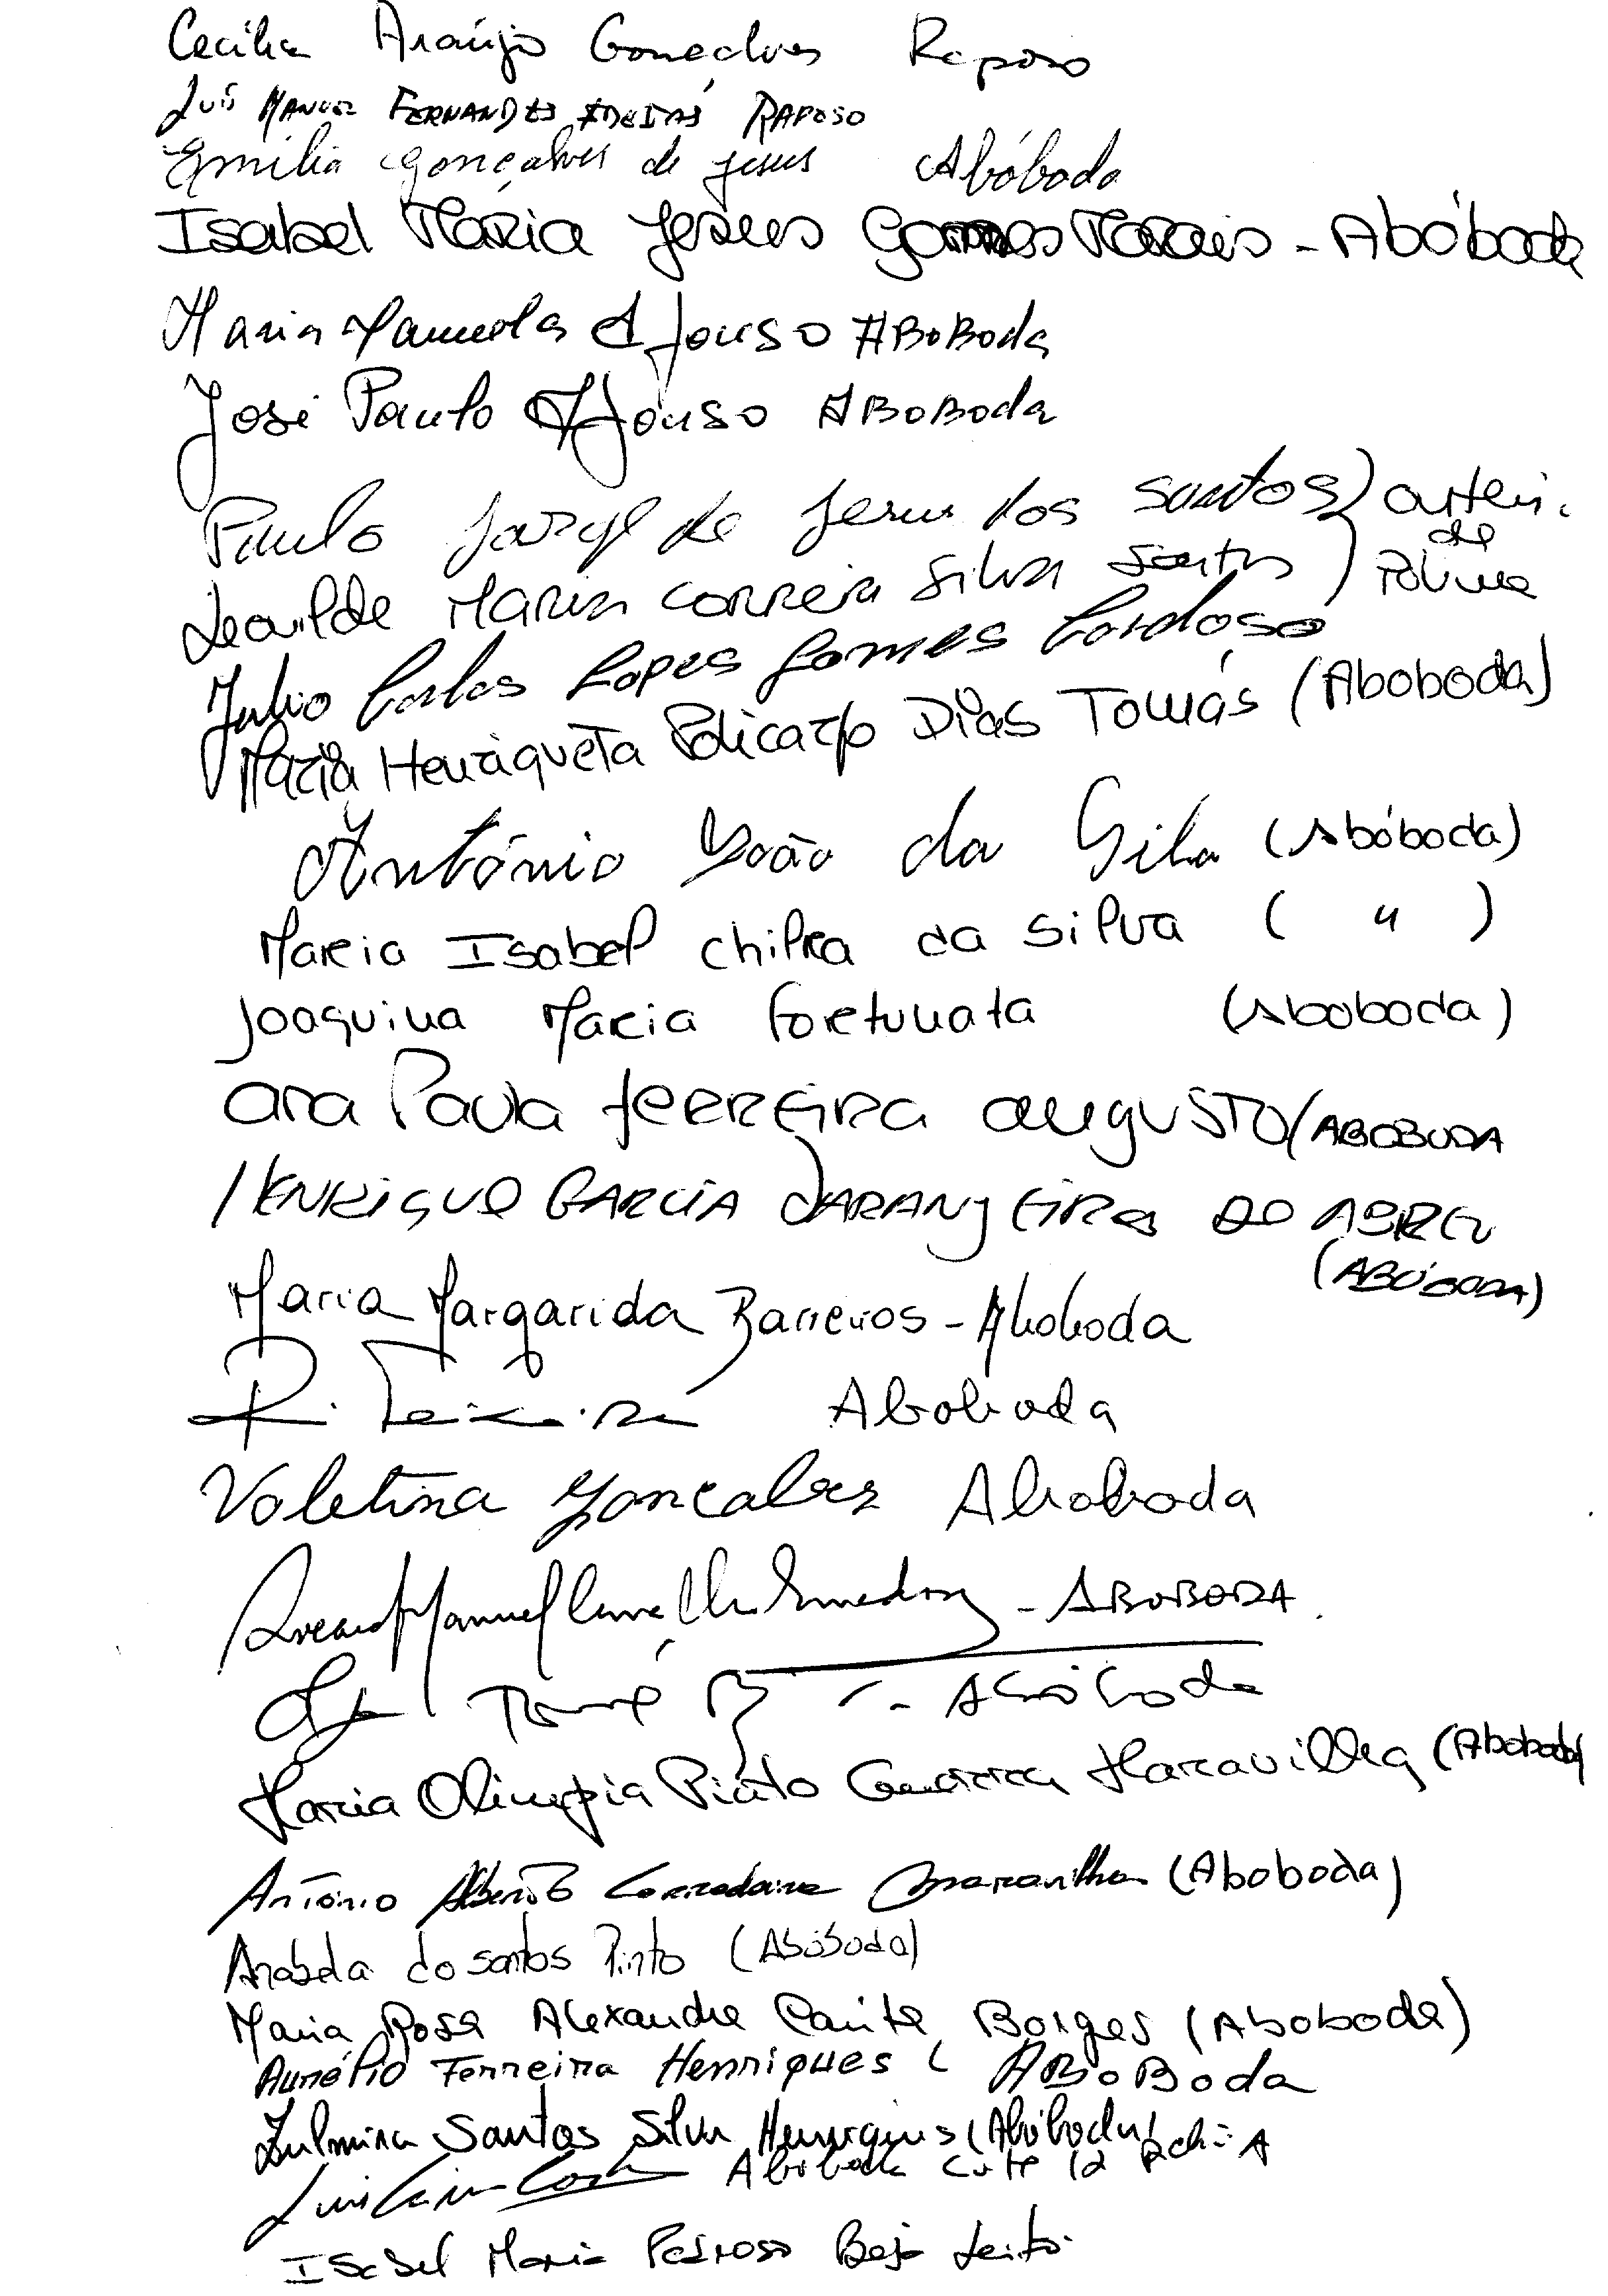 Cecília Araújo Gonçalves Raposo
Luís Manuel Fernandes Freitas Raposo
Emília Gonçalves de Jesus Abóboda
Isabel Maria Jesus Gomes Morais - Abóboda
Maria Manuela Afonso ABoBoda
José Paulo Afonso ABoBoda
Paulo Jorge de Jesus dos Santos
Leonilde Maria Correia Silva Santos
de Polima
Julio Carlos Lopes Gomes Cardoso
Maria Henriqueta Policarpo Dias Tomás (Aboboda)
António João da Silva (Abóboda)
Maria Isabel Chilra da Silva ( " )
Joaquina Maria Fortunata (Aboboda)
Ana Paula Ferreira Augusto / ABOBODA
HENRIQUE GARCIA LARANJEIRA DE ABREU
(ABÓBODA)
Maria Margarida Barreiros - Aboboda
Teixeira Aboboda
Valetina Gonçalves Aboboda
Manuel - ABOBODA
Tomé - Abóboda
Maria Olimpia Pinto Guerra Maravilha (Aboboda)
António Alberto Maravilha (Aboboda)
Anabela do santos Pinto (Abóboda)
Maria Rosa Alexandre Borges (Aboboda)
Aurélio Ferreira Henriques ( ABoBoda
Zulmira Santos Silva Henriques (Abóboda)
Luis Costa Abóboda
Isabel Maria Pedroso Beja Leitão